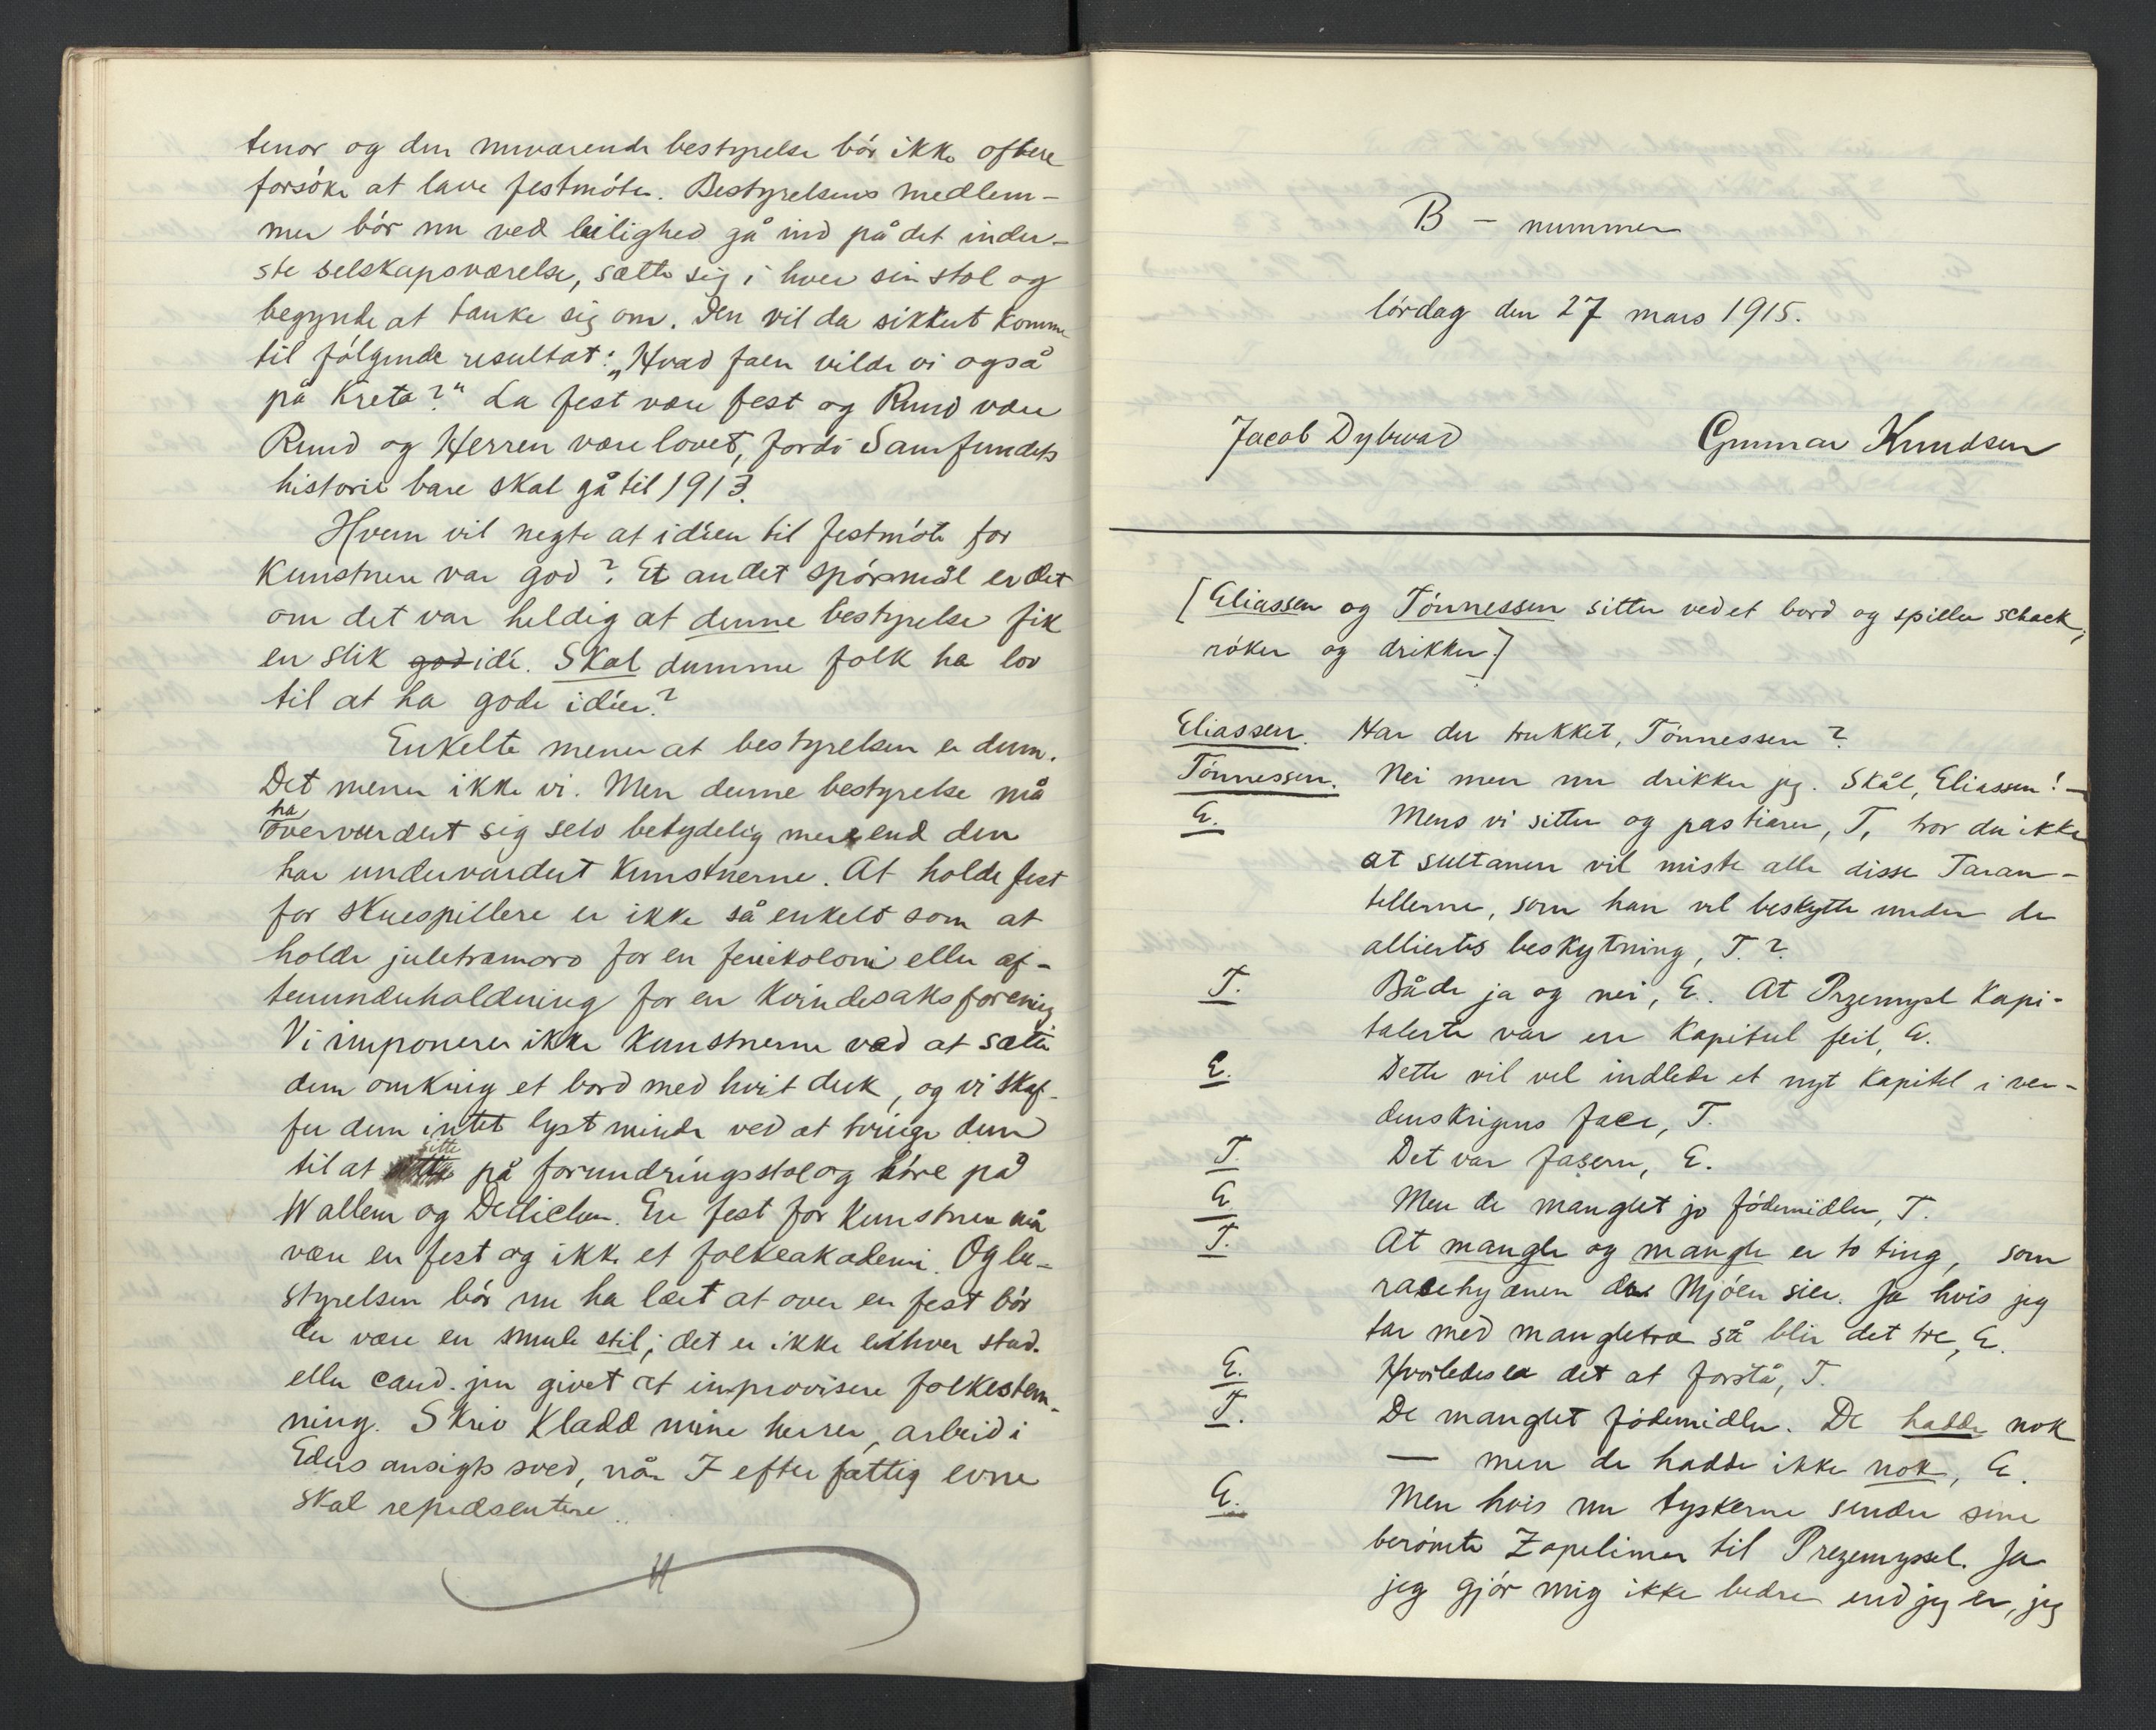 tenor og den nuværende bestyrelse bör ikke oftere
forsöke at lave festmöter. Bestyrelsens medlem-
mer bör nu ved leilighed gå ind på det inder-
ste selskapsværelse, sætte sig i hver sin stol og
begynde at tænke sig om. Den vil da sikkert komme
til fölgende resultat: „Hvad faen vilde vi også
på Kreta?" La fest være fest og Ruud være
Ruud og Herren være lovet, fordi Samfundets
historie bare skal gå til 1913.
Hvem vil negte at idéen til festmöte for
Kunstnere var god? Et andet spörsmål er det
om det var heldig at denne bestyrelse fik
en slik god idé. Skal dumme folk ha lov
til at ha gode idéer?
Enkelte mener at bestyrelsen er dum.
Det mener ikke vi. Men denne bestyrelse må
ha
overvurdert sig selv betydelig mere end den
har undervurdert Kunstnerne. At holde fest
for skuespillere er ikke så enkelt som at
holde juletræmoro for en feriekoloni eller af-
tenunderholdning for en Kvindesaksforening
Vi imponerer ikke Kunstnerne ved at sætte
dem omkring et bord med hvit duk, og vi skaf-
fer dem intet lyst minde ved at tvinge dem
sitte
til at på forundringsstol og höre på
Wallem og Detlichen. En fest for Kunstnere må
være en fest og ikke et folkeakademi. Og be-
styrelsen bör nu ha lært at over en fest bör
der være en smule stil; det er ikke enhver stud.
eller cand. jur givet at improvisere folkestem-
ning. Skriv Kladd mine herrer, arbeid i
Eders ansigts sved, når I efter fattig evne
skal repræsentere.
B - nummer
lördag den 27 mars 1915.
Jacob Dybwad Gunnar Knudsen
[Eliassen og Tönnessen sitter ved et bord og spiller schack,
röker og drikker.]
Eliassen. Har du trukket, Tönnessen?
Tönnessen. Nei men nu drikker jeg. Skål, Eliassen! -
E. Mens vi sitter og pastiarer, T, tror du ikke
at sultanen vil miste alle disse Taran-
tellerne, som han vil beskytte under de
alliertes beskytning, T.?
T. Både ja og nei, E. At Przemysl Kapi-
talerte var en Kapitel feil, E.
E. Dette vil vel indlede et nyt Kapitel i ver-
denskrigens face, T.
T. Det var fasern, E.
E. Men de manglet jo födemidler, T.
T. At mangle og mangle er to ting, som
racehyænen Mjöen sier. Ja hvis jeg
tar med mangletræ så blir det tre, E.
E. Hvorledes er det at forstå, T.
T. De manglet födemidler. De hadde nok
— men de hadde ikke nok, E.
E. Men hvis nu tyskerne sender sine
berömte Zapeliner til Prezemyssel. Ja
jeg gjör mig ikke bedre end jeg er, jeg